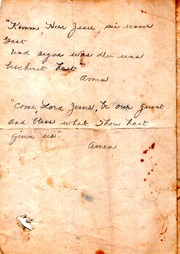 "Komm Herr Jesu, sei unser
Gast
Und segne was du uns
bescheret hast"
Amen
"Come Lord Jesus, be our guest
and bless what Thou hast
given us"
Amen